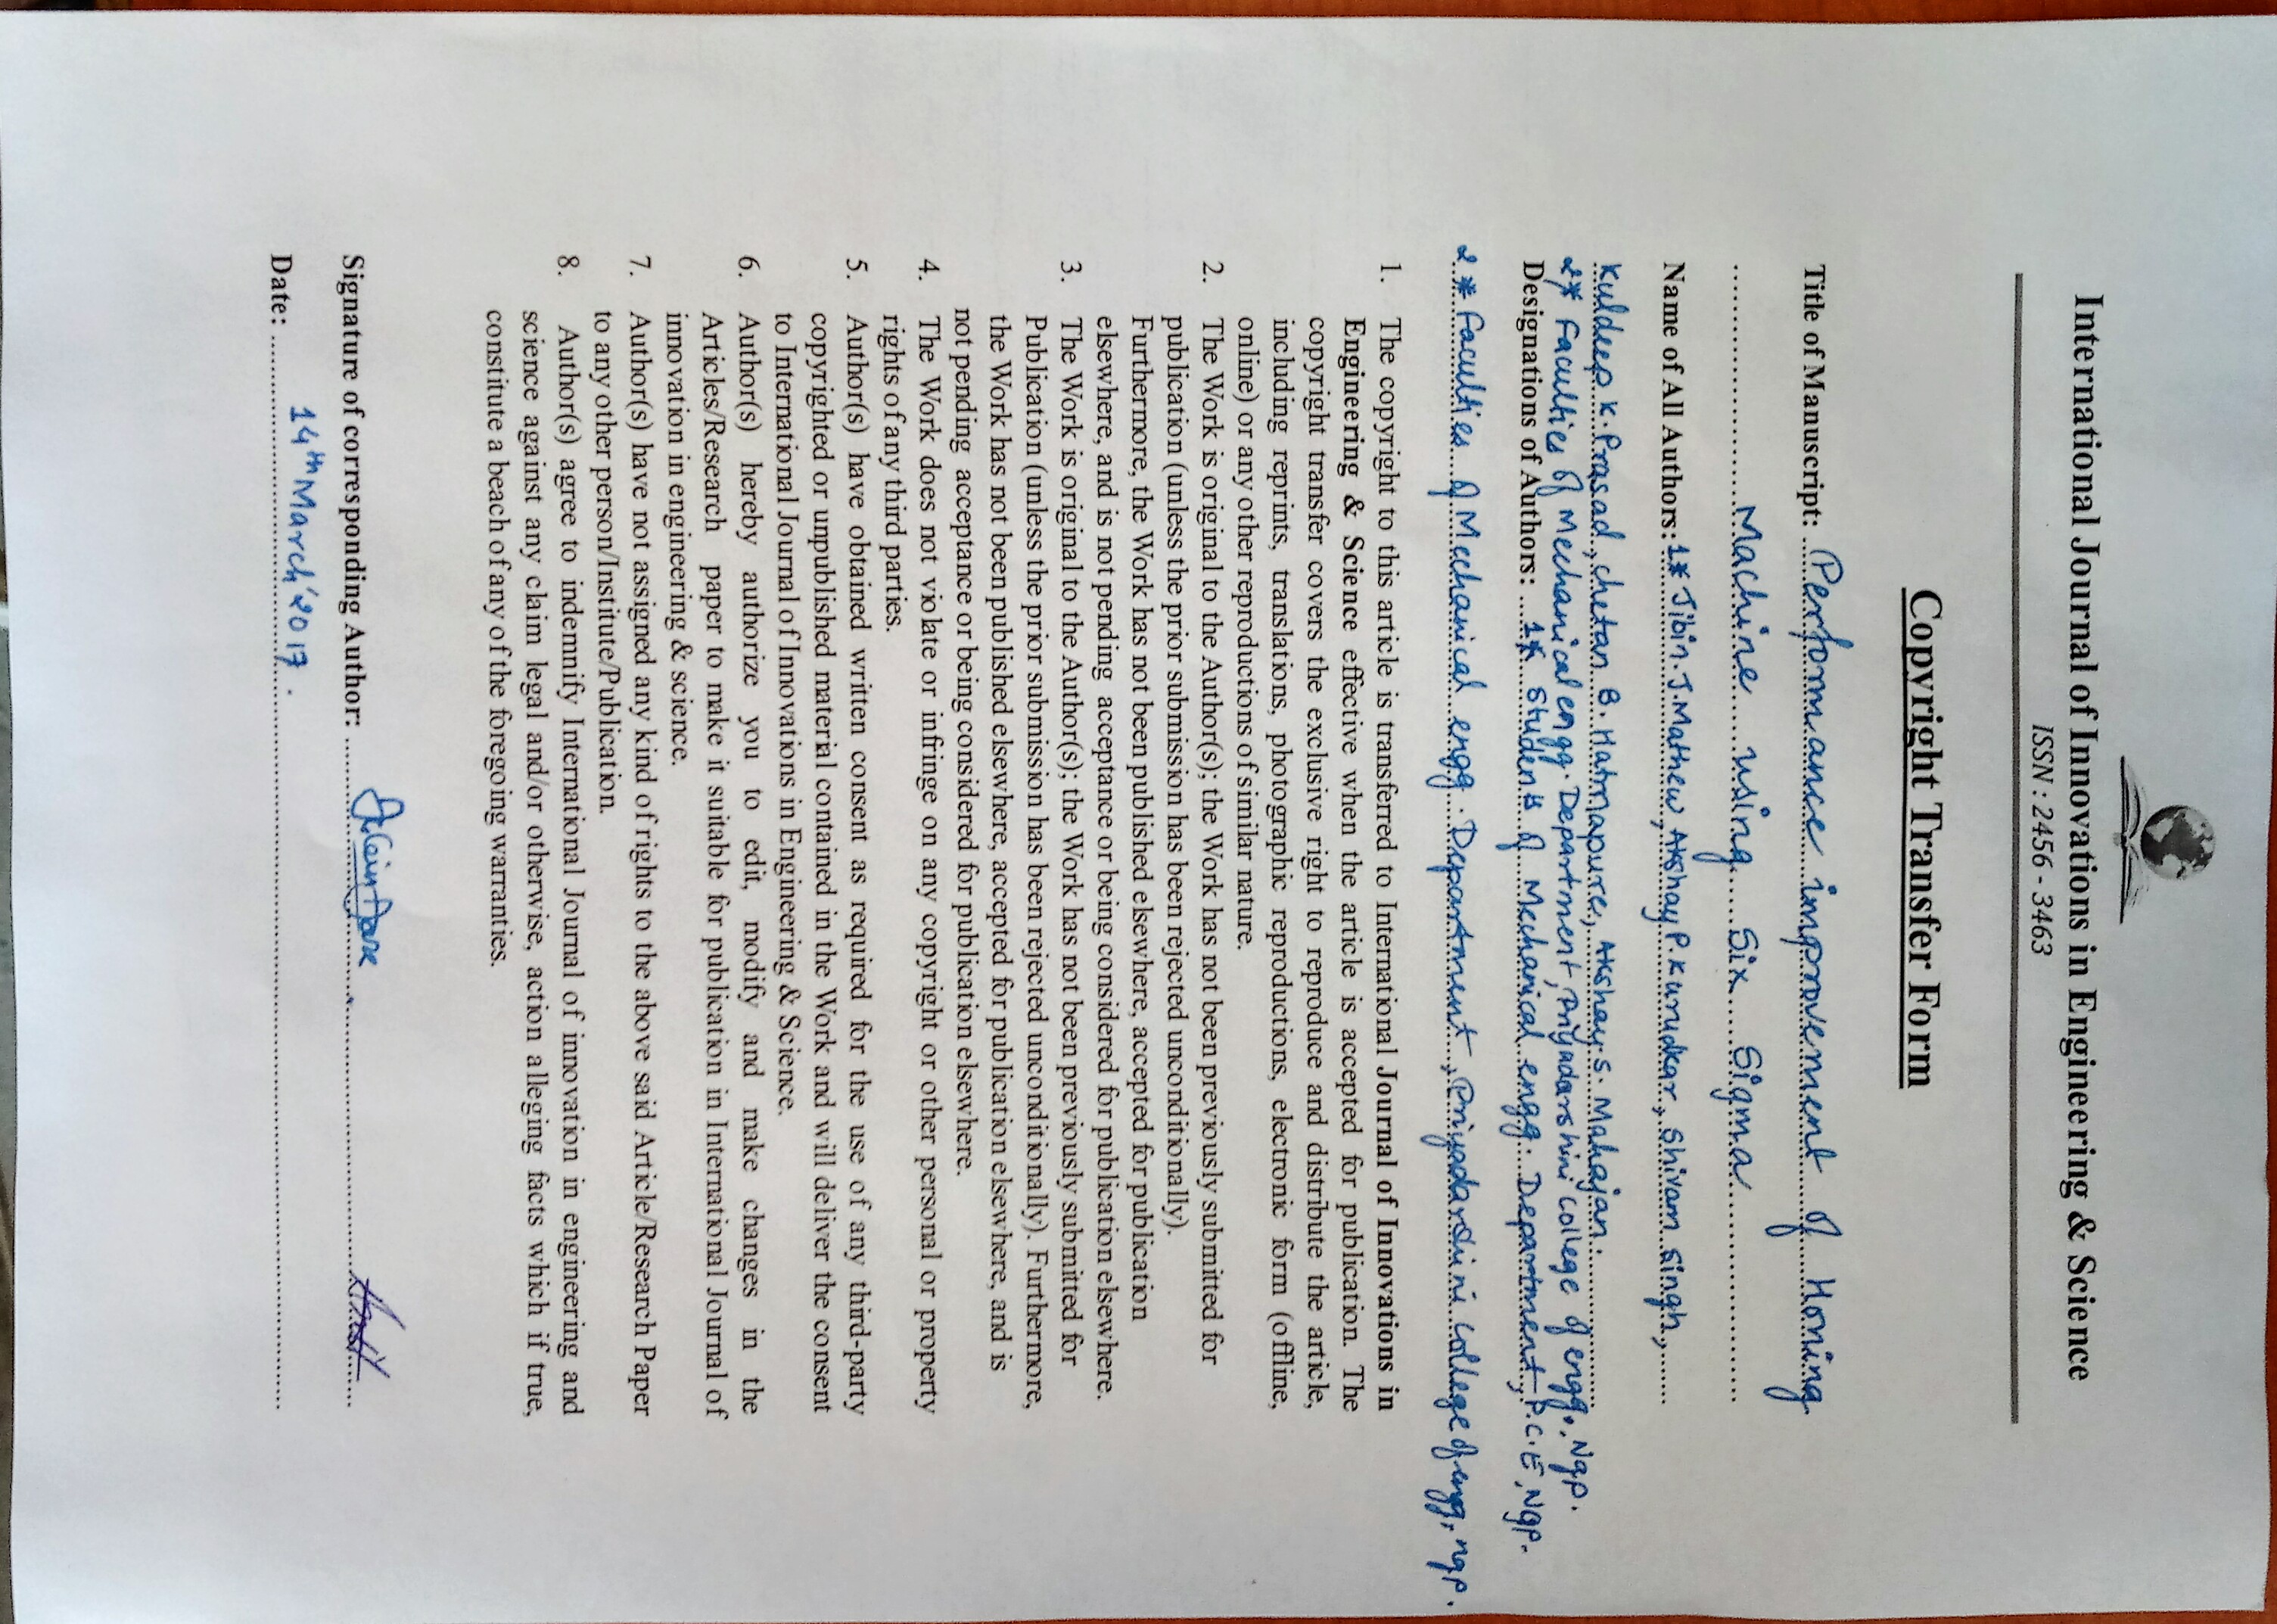 International Journal of Innovations in Engineering & Science
ISSN : 2456 - 3463
Copyright Transfer Form
Title of Manuscript: Performance improvement of Honing
Machine using Six Sigma
Name of All Authors: 1* Jibin.J.Mathew, Akshay P. Kurrudkar, Shivam Singh,
Kuldeep K. Prasad, Chetan B. Hatmapure, Akshay.S. Mahajan.
2* Faculties of Mechanical engg. Department, Priyadarshini College of engg., Ngp.
Designations of Authors: 1* Students of Mechanical engg. Department, P.C.E, Ngp.
2* Faculties of Mechanical engg. Department, Priyadarshini College of engg, ngp.
1. The copyright to this article is transferred to International Journal of Innovations in
Engineering & Science effective when the article is accepted for publication. The
copyright transfer covers the exclusive right to reproduce and distribute the article,
including reprints, translations, photographic reproductions, electronic form (offline,
online) or any other reproductions of similar nature.
2. The Work is original to the Author(s); the Work has not been previously submitted for
publication (unless the prior submission has been rejected unconditionally).
Furthermore, the Work has not been published elsewhere, accepted for publication
elsewhere, and is not pending acceptance or being considered for publication elsewhere.
3. The Work is original to the Author(s); the Work has not been previously submitted for
Publication (unless the prior submission has been rejected unconditionally). Furthermore,
the Work has not been published elsewhere, accepted for publication elsewhere, and is
not pending acceptance or being considered for publication elsewhere.
4. The Work does not violate or infringe on any copyright or other personal or property
rights of any third parties.
5. Author(s) have obtained written consent as required for the use of any third-party
copyrighted or unpublished material contained in the Work and will deliver the consent
to International Journal of Innovations in Engineering & Science.
6. Author(s) hereby authorize you to edit, modify and make changes in the
Articles/Research paper to make it suitable for publication in International Journal of
innovation in engineering & science.
7. Author(s) have not assigned any kind of rights to the above said Article/Research Paper
to any other person/Institute/Publication.
8. Author(s) agree to indemnify International Journal of innovation in engineering and
science against any claim legal and/or otherwise, action alleging facts which if true,
constitute a beach of any of the foregoing warranties.
Signature of corresponding Author:
Date: 14th March'2017.